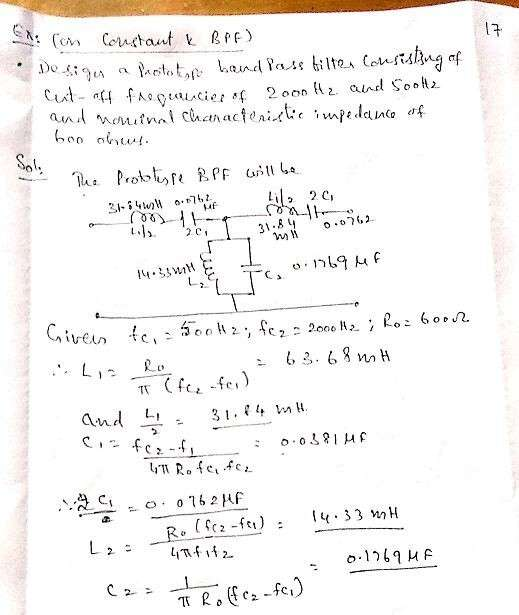 17
Ex: (on Constant k BPF)
• Design a Prototype band Pass filter Consisting of
Cut-off frequencies of 2000Hz and 500Hz
and nominal characteristic impedance of
600 ohms.
Sol:
The Prototype BPF will be
31.84mH 0.0762 μF L1/2 2C1
L1/2 2C1 31.84 mH 0.0762
14.33mH L2 C2 0.1769 μF
Given fc1 = 500Hz; fc2 = 2000Hz; R0 = 600Ω
∴ L1 = R0 / π (fc2 - fc1) = 63.68mH
and L1/2 = 31.84 mH.
C1 = fc2 - f1 / 4π R0 fc1.fc2 = 0.0381μF
∴ 2C1 = 0.0762μF
L2 = R0 (fc2 - fc1) / 4π f1f2 = 14.33 mH
C2 = 1 / π R0 (fc2 - fc1) = 0.1769 μF